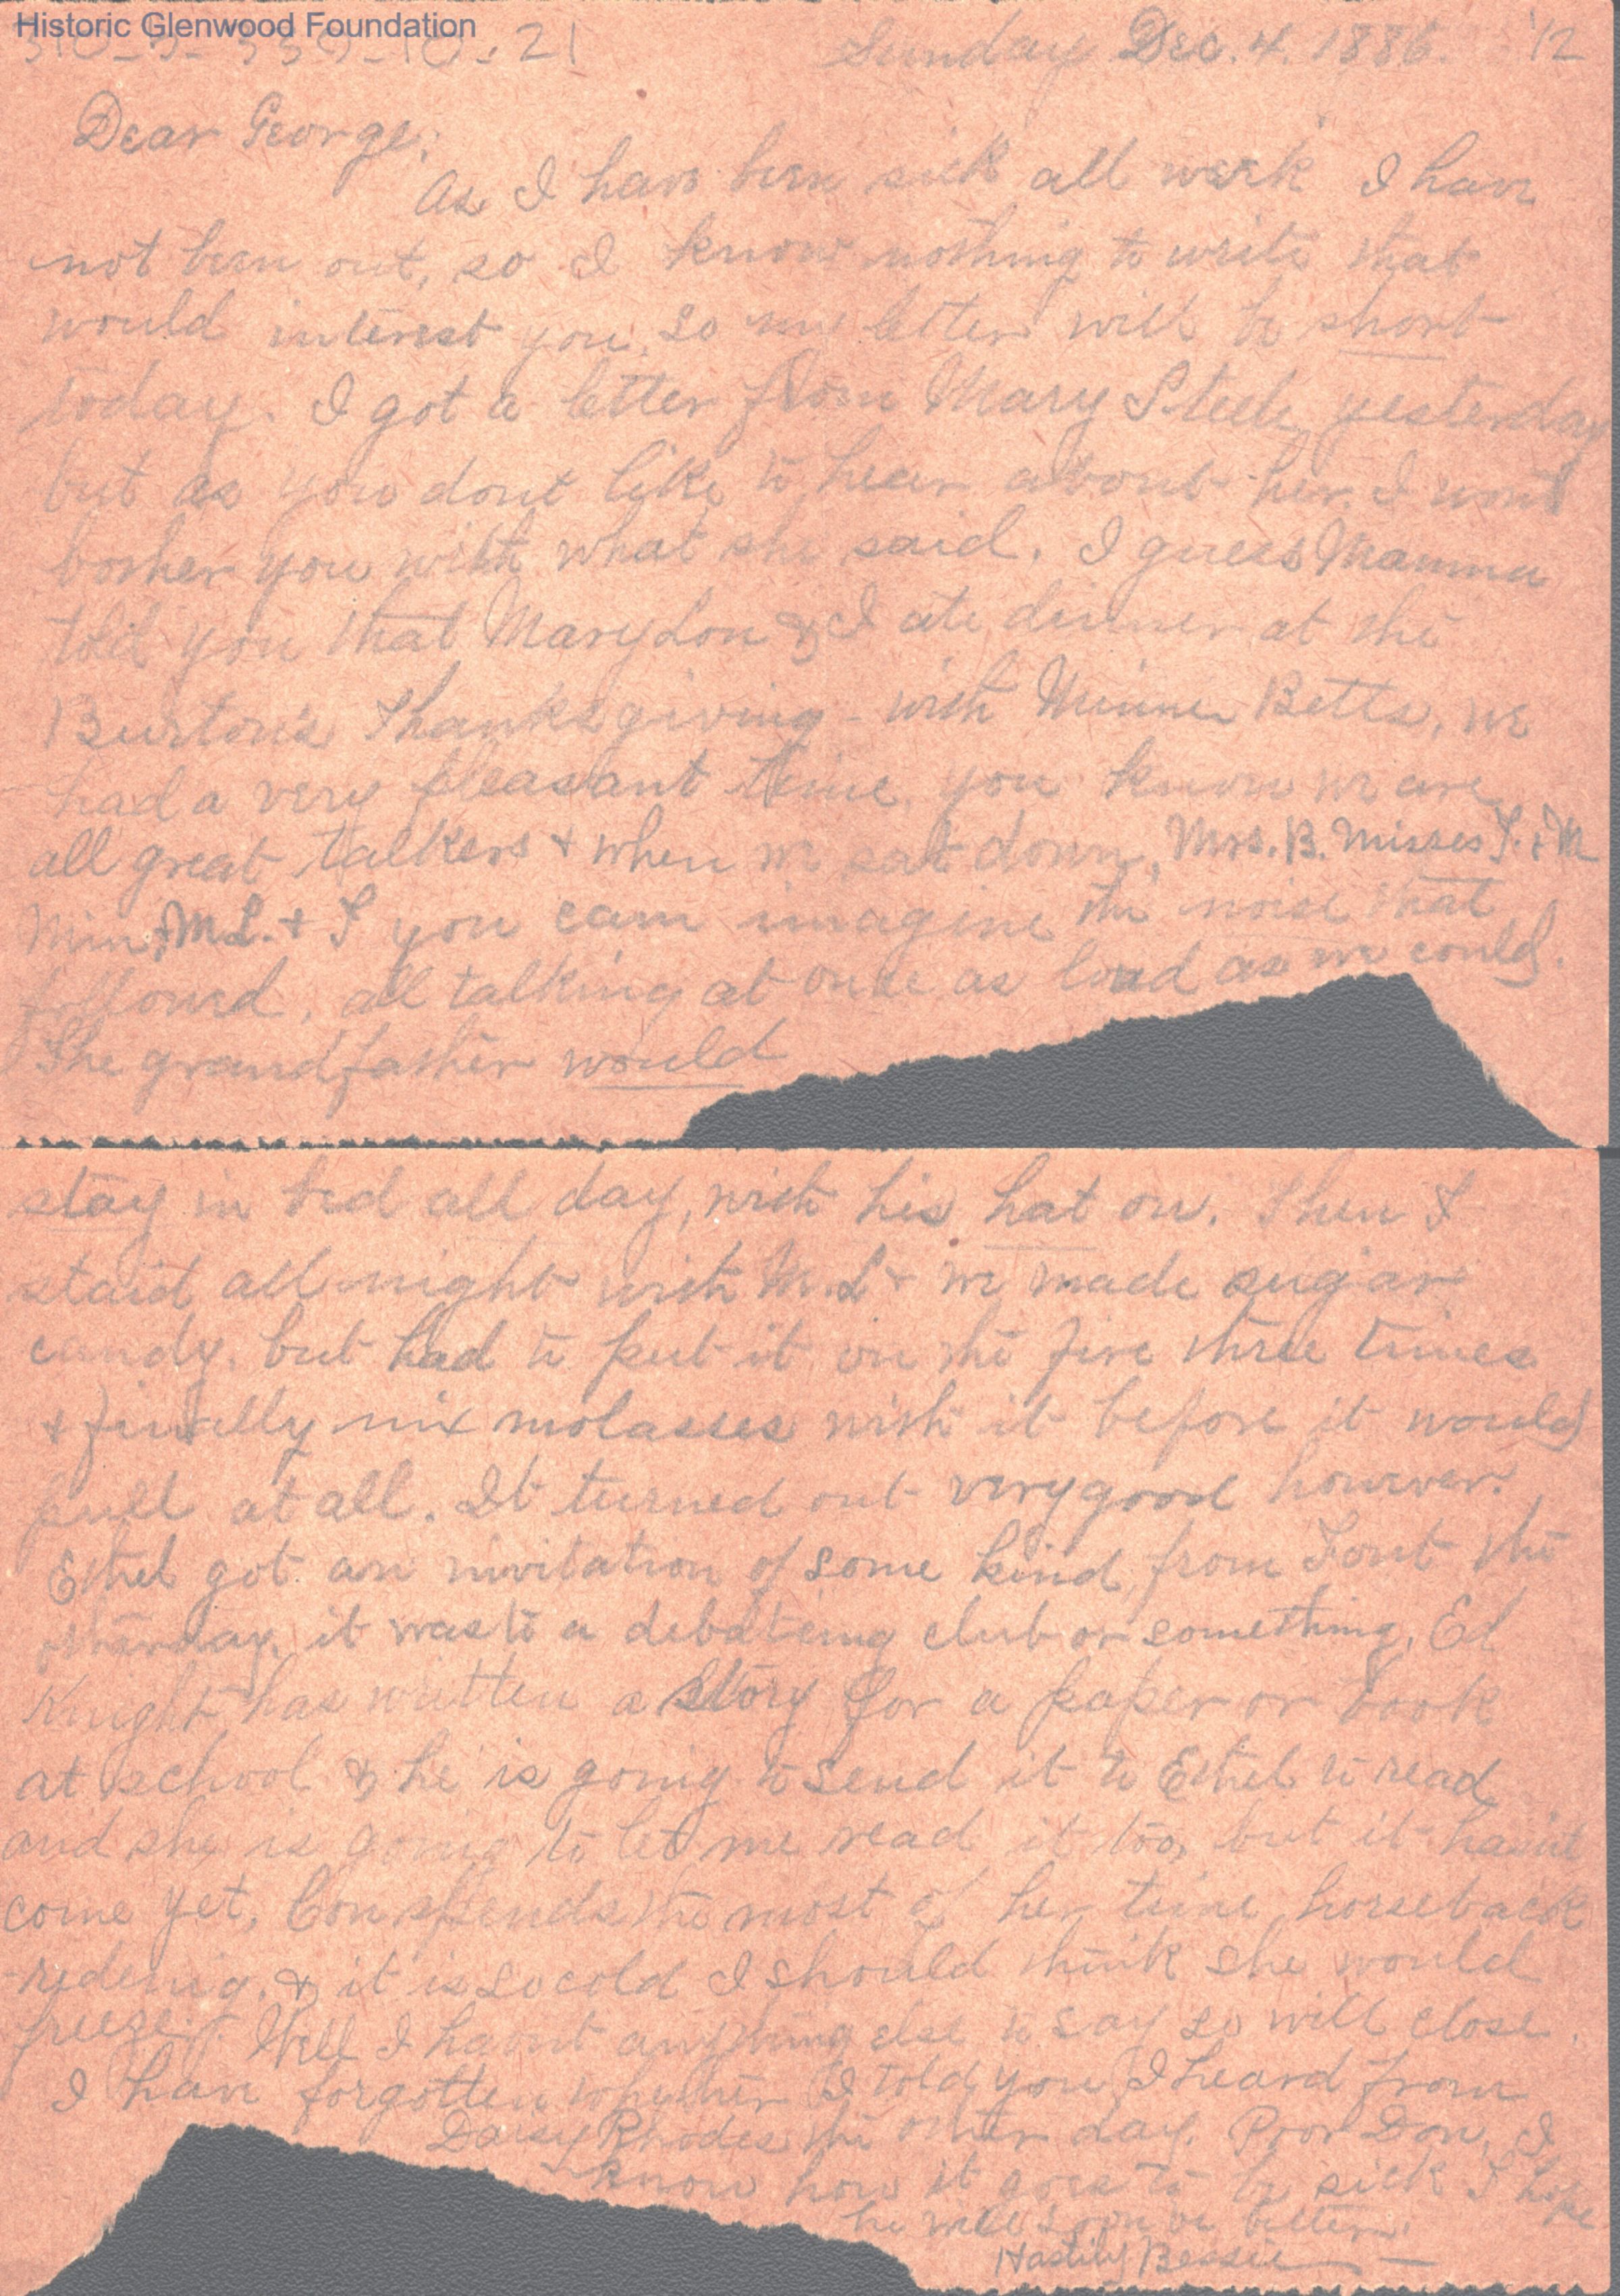 Historic Glenwood Foundation
310-5-339-10.21 Sunday Dec. 4. 1886. 1/2
Dear George;
As I have been sick all week I have
not been out, so I know nothing to write that
would interest you, so my letter will be short
today. I got a letter from Mary Steele yesterday
but as you dont like to hear about her I wont
bother you with what she said. I guess Mamma
told you that Mary Lon & I ate dinner at the
Burton's Thanksgiving - with Minnie Betts, we
had a very pleasant time, you know we are
all great talkers + when we sat down, Mrs. B. Misses J. & M
Min, M L. + I you can imagine the noise that
followed, all talking at once as loud as we could.
The grandfather would
stay in bed all day, with his hat on. Then I
staid all night with M. L + we made sugar
candy, but had to put it on the fire three times
+ finally mix molasses with it before it would
pull at all. It turned out very good however.
Ethel got an invitation of some kind from Font the
otherday, it was to a debateing club or something. Ed
Knight has written a story for a paper or book
at school & he is going to send it to Ethel to read
and she is going to let me read it too, but it haint
come yet. Con spends the most of her time horseback
rideing, & it is so cold I should think she would
freeze. Well I haint anything else to say so will close.
I have forgotten whether I told you I heard from
Daisy Rhodes the other day. Poor Don, I
know how it goes to be sick I hope
he will soon be better.
Hastily Bessie